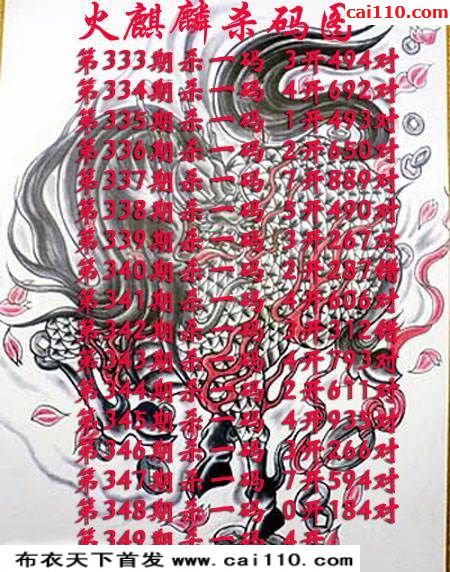 cai110.com
火麒麟杀码图
第333期杀一码 3开494对
第334期杀一码 4开692对
第335期杀一码 1开493对
第336期杀一码 2开650对
第337期杀一码 7开889对
第338期杀一码 5开490对
第339期杀一码 3开267对
第340期杀一码 2开287错
第341期杀一码 4开606对
第342期杀一码 3开312错
第343期杀一码 4开793对
第344期杀一码 2开611对
第345期杀一码 4开935对
第346期杀一码 3开266对
第347期杀一码 7开594对
第348期杀一码 0开184对
第349期杀一码 4开
布衣天下首发 www.cai110.com